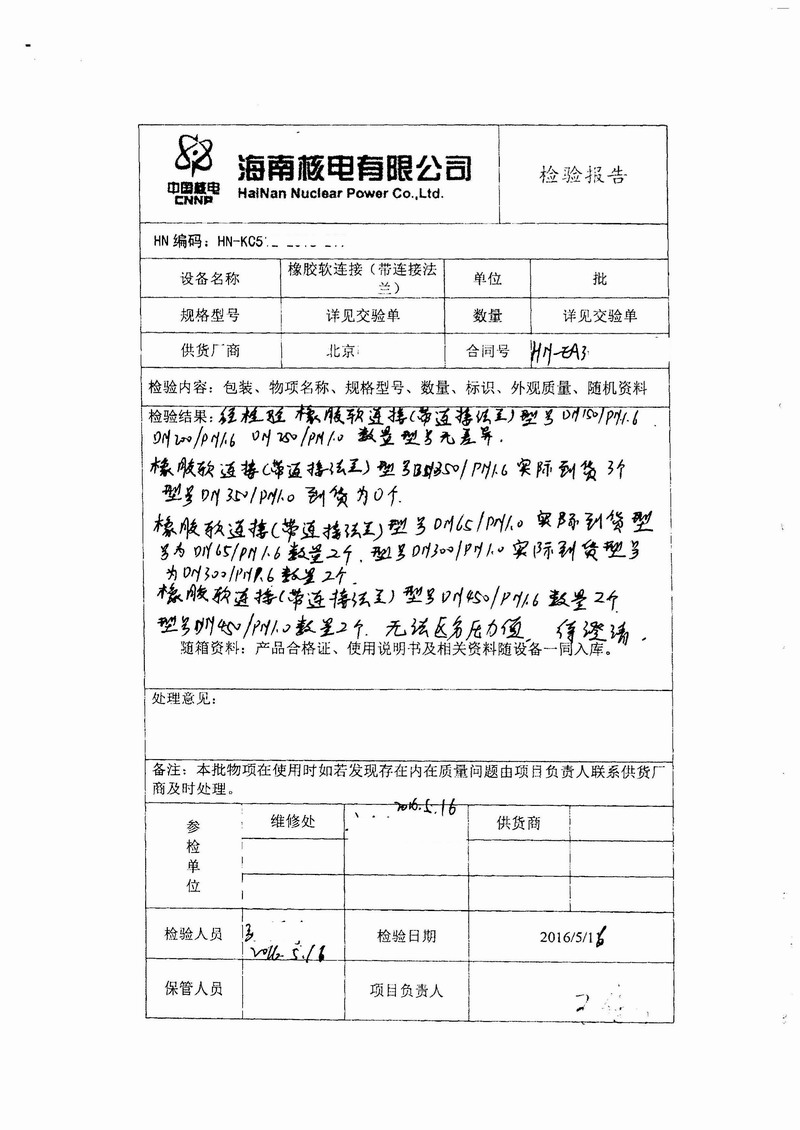 中国核电
CNNP
海南核电有限公司
HaiNan Nuclear Power Co.,Ltd.
检验报告
HN 编码：HN-KC5
设备名称
橡胶软连接（带连接法
兰）
单位
批
规格型号
详见交验单
数量
详见交验单
供货厂商
北京
合同号
HN-EA3
检验内容：包装、物项名称、规格型号、数量、标识、外观质量、随机资料
检验结果：经检验 橡胶软连接(带连接法兰)型号DN150/PN1.6
DN200/PN1.6 DN250/PN1.0 数量型号无差异.
橡胶软连接(带连接法兰)型号DN350/PN1.6实际到货3个
型号DN350/PN1.0到货为0个.
橡胶软连接(带连接法兰)型号DN65/PN1.0 实际到货型
号为DN65/PN1.6数量2个. 型号DN300/PN1.0实际到货型号
为DN300/PN1.6数量2个.
橡胶软连接(带连接法兰)型号DN450/PN1.6数量2个
型号DN450/PN1.0数量2个. 无法区分压力值. 待澄清.
随箱资料：产品合格证、使用说明书及相关资料随设备一同入库。
处理意见：
备注：本批物项在使用时如若发现存在内在质量问题由项目负责人联系供货厂
商及时处理。
参
检
单
位
维修处
2016.5.16
供货商
检验人员
2016.5.16
检验日期
2016/5/16
保管人员
项目负责人